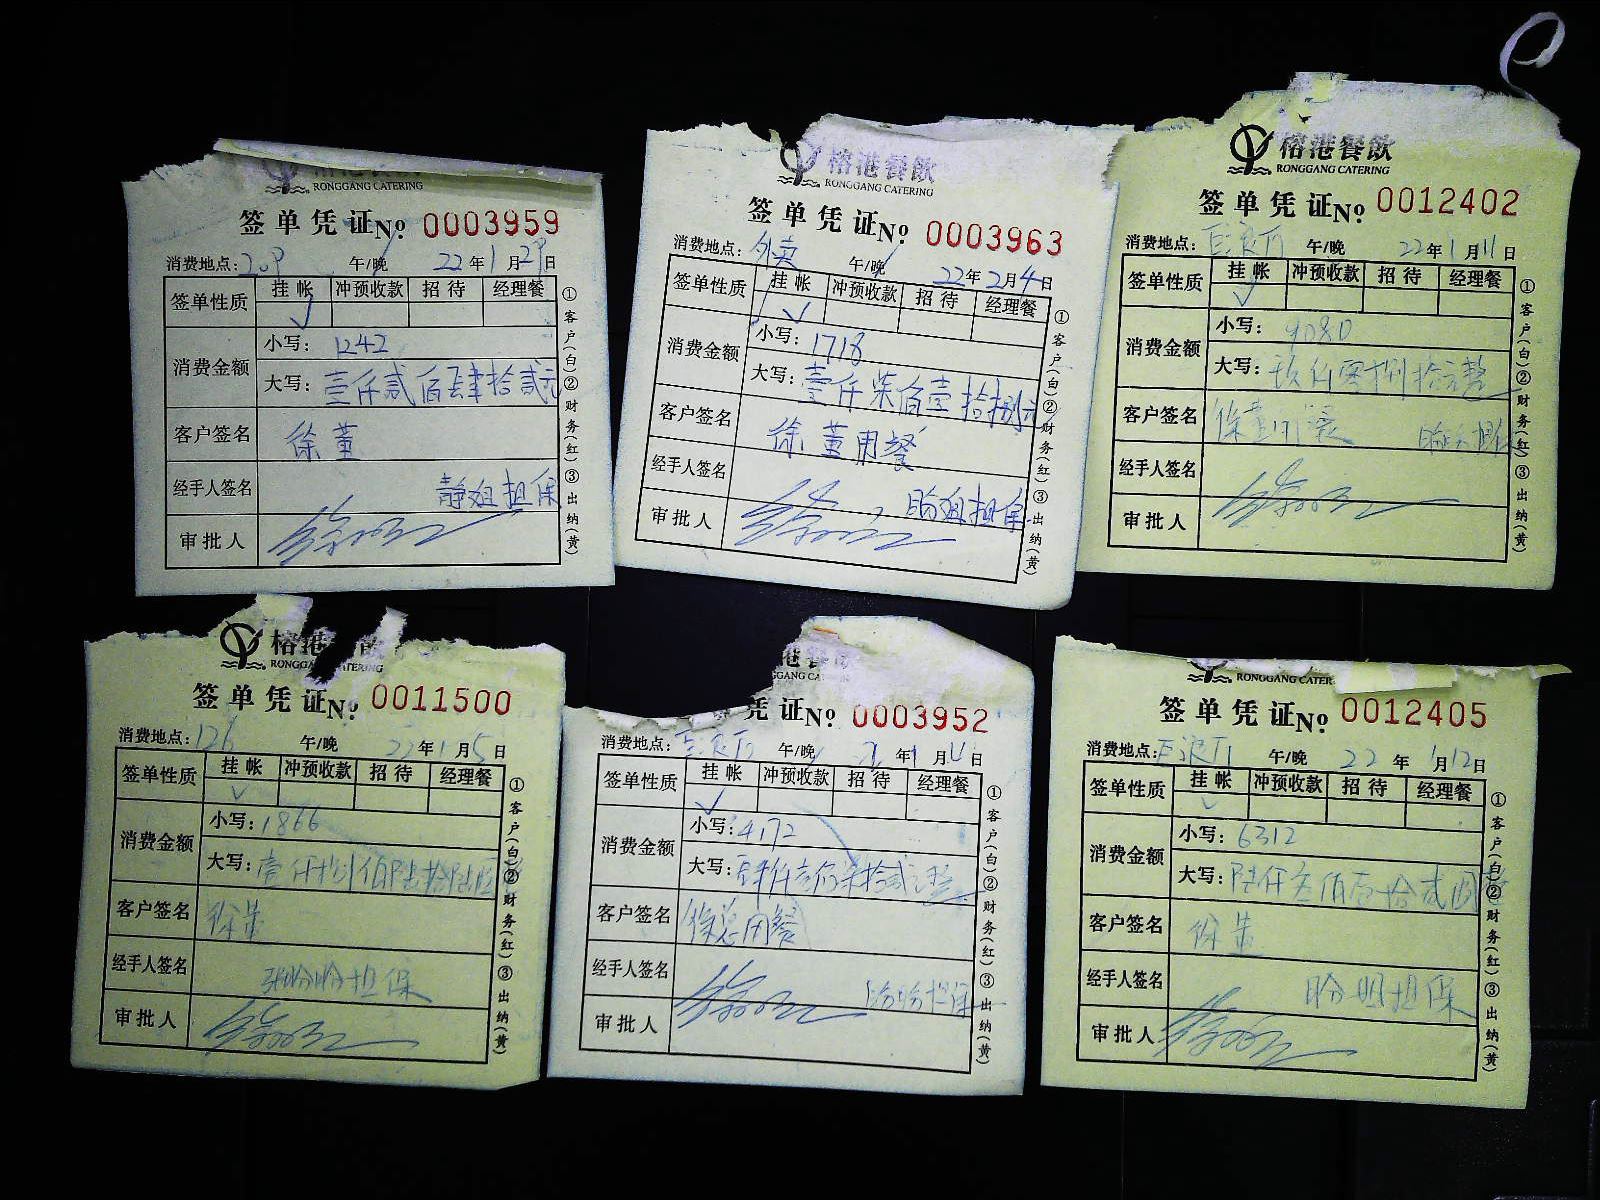 RONGGANG CATERING
签单凭证 No 0003959
消费地点: 209 午/晚 22年1月29日
签单性质 挂帐 冲预收款 招待 经理餐
消费金额 小写: 1242
大写: 壹仟贰佰肆拾贰元
客户签名 徐董
经手人签名 静姐担保
审批人
①客户(白)②财务(红)③出纳(黄)
榕港餐飲
RONGGANG CATERING
签单凭证 No 0003963
消费地点: 外卖 午/晚 22年2月4日
签单性质 挂帐 冲预收款 招待 经理餐
消费金额 小写: 1718
大写: 壹仟柒佰壹拾捌元
客户签名 徐董用餐
经手人签名 盼姐担保
审批人
①客户(白)②财务(红)③出纳(黄)
榕港餐飲
RONGGANG CATERING
签单凭证 No 0012402
消费地点: 午/晚 22年1月11日
签单性质 挂帐 冲预收款 招待 经理餐
消费金额 小写: 9080
大写: 玖仟零捌拾元整
客户签名 徐董用餐
经手人签名
审批人
①客户(白)②财务(红)③出纳(黄)
榕港餐飲
RONGGANG CATERING
签单凭证 No 0011500
消费地点: 126 午/晚 22年1月5日
签单性质 挂帐 冲预收款 招待 经理餐
消费金额 小写: 1866
大写: 壹仟捌佰陆拾陆
客户签名 徐董
经手人签名 张盼盼担保
审批人
①客户(白)②财务(红)③出纳(黄)
港餐飲
GGANG CA
凭证 No 0003952
消费地点: 午/晚 年1月 日
签单性质 挂帐 冲预收款 招待 经理餐
消费金额 小写: 4172
大写: 肆仟壹佰柒拾贰元整
客户签名 徐总用餐
经手人签名 盼盼担保
审批人
①客户(白)②财务(红)③出纳(黄)
RONGGANG CATER
签单凭证 No 0012405
消费地点: 午/晚 22年1月12日
签单性质 挂帐 冲预收款 招待 经理餐
消费金额 小写: 6312
大写: 陆仟叁佰壹拾贰圆
客户签名 徐董
经手人签名 盼姐担保
审批人
①客户(白)②财务(红)③出纳(黄)